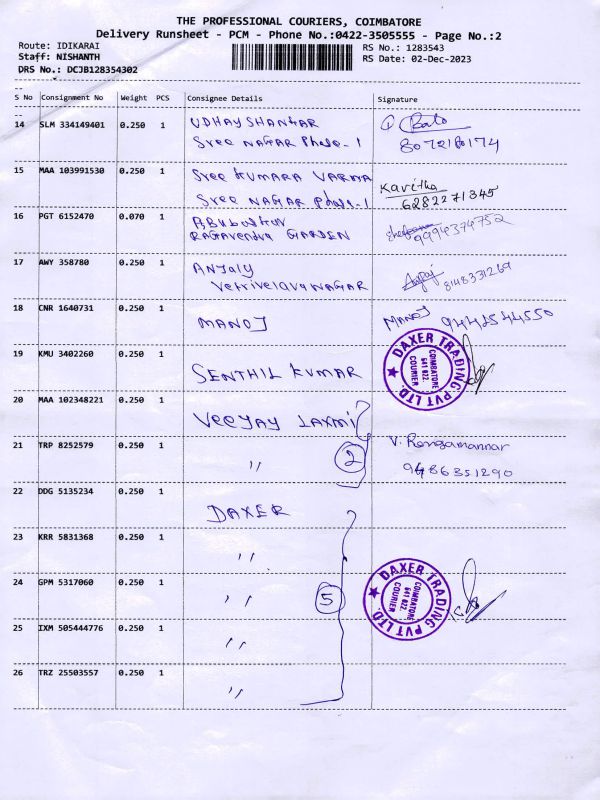 THE PROFESSIONAL COURIERS, COIMBATORE
Delivery Runsheet - PCM - Phone No.:0422-3505555 - Page No.:2
Route: IDIKARAI
RS No.: 1283543
Staff: NISHANTH
RS Date: 02-Dec-2023
DRS No.: DCJB128354302
S No Consignment No Weight PCS Consignee Details Signature
14 SLM 334149401 0.250 1 UDHAYSHANKAR
Sree NAGAR Phase-1
8072180174
15 MAA 103991530 0.250 1 Sree KUMARA VARMA
Sree NAGAR Phase-1
Kavitha
6282271345
16 PGT 6152470 0.070 1
RAGAVENDRA GARDEN
9994374752
17 AWY 358780 0.250 1 ANJALY
VetrivelavaNAGAR
8148331269
18 CNR 1640731 0.250 1 MANOJ
MANOJ 9442544550
19 KMU 3402260 0.250 1 SENTHIL KUMAR
DAXER TRADING PVT LTD.
COIMBATORE
641 022.
COURIER
20 MAA 102348221 0.250 1 VEEJAY LAXMI
21 TRP 8252579 0.250 1 〃
2
V. Rengamannar
9486351290
22 DDG 5135234 0.250 1 DAXER
23 KRR 5831368 0.250 1 〃
24 GPM 5317060 0.250 1 〃
5
DAXER TRADING PVT LTD.
COIMBATORE
641 022.
COURIER
25 IXM 505444776 0.250 1 〃
26 TRZ 25503557 0.250 1 〃